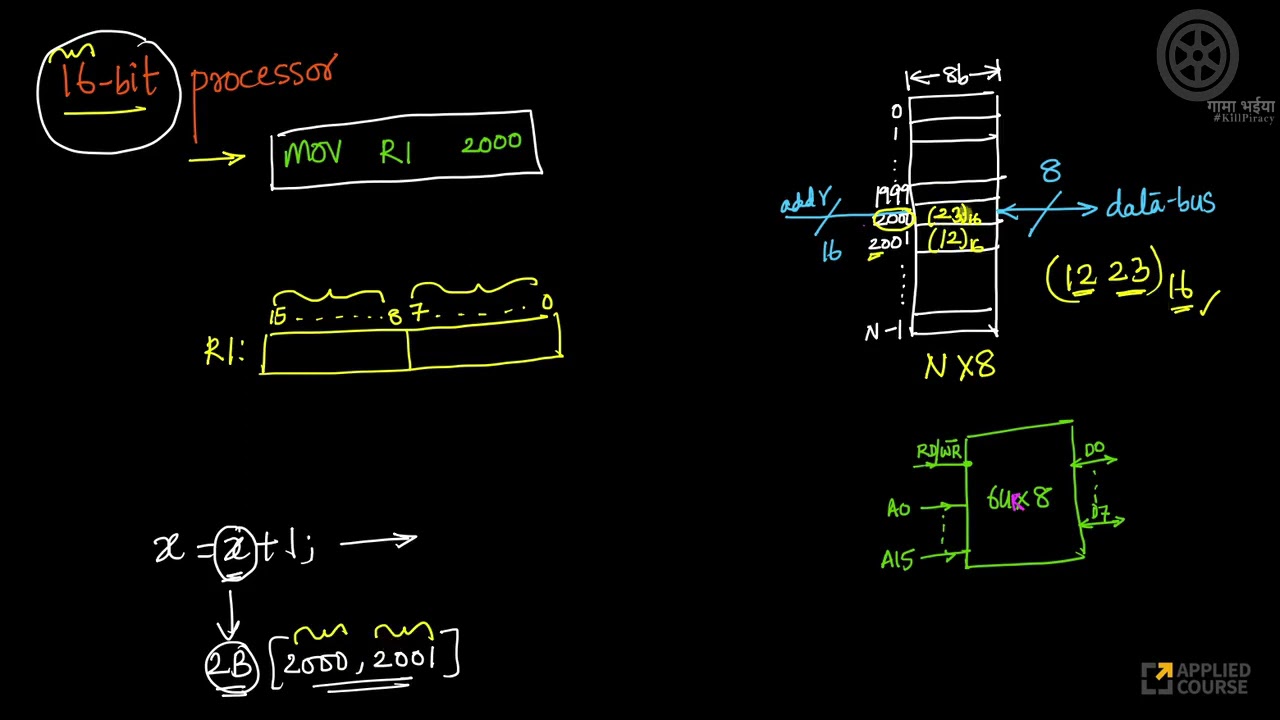 16-bit processor
MOV R1 2000
R1:
15 - - - - - - 8 7 - - - - - 0
x = x + 1; →
2B [2000, 2001]
8b
0
1
1999
2000 (23)16
2001 (12)16
N-1
N x 8
addr
16
8
data-bus
(12 23)16 ✓
RD/WR
A0
A15
64K x 8
D0
D7
गामा भईया
#KillPiracy
APPLIED
COURSE